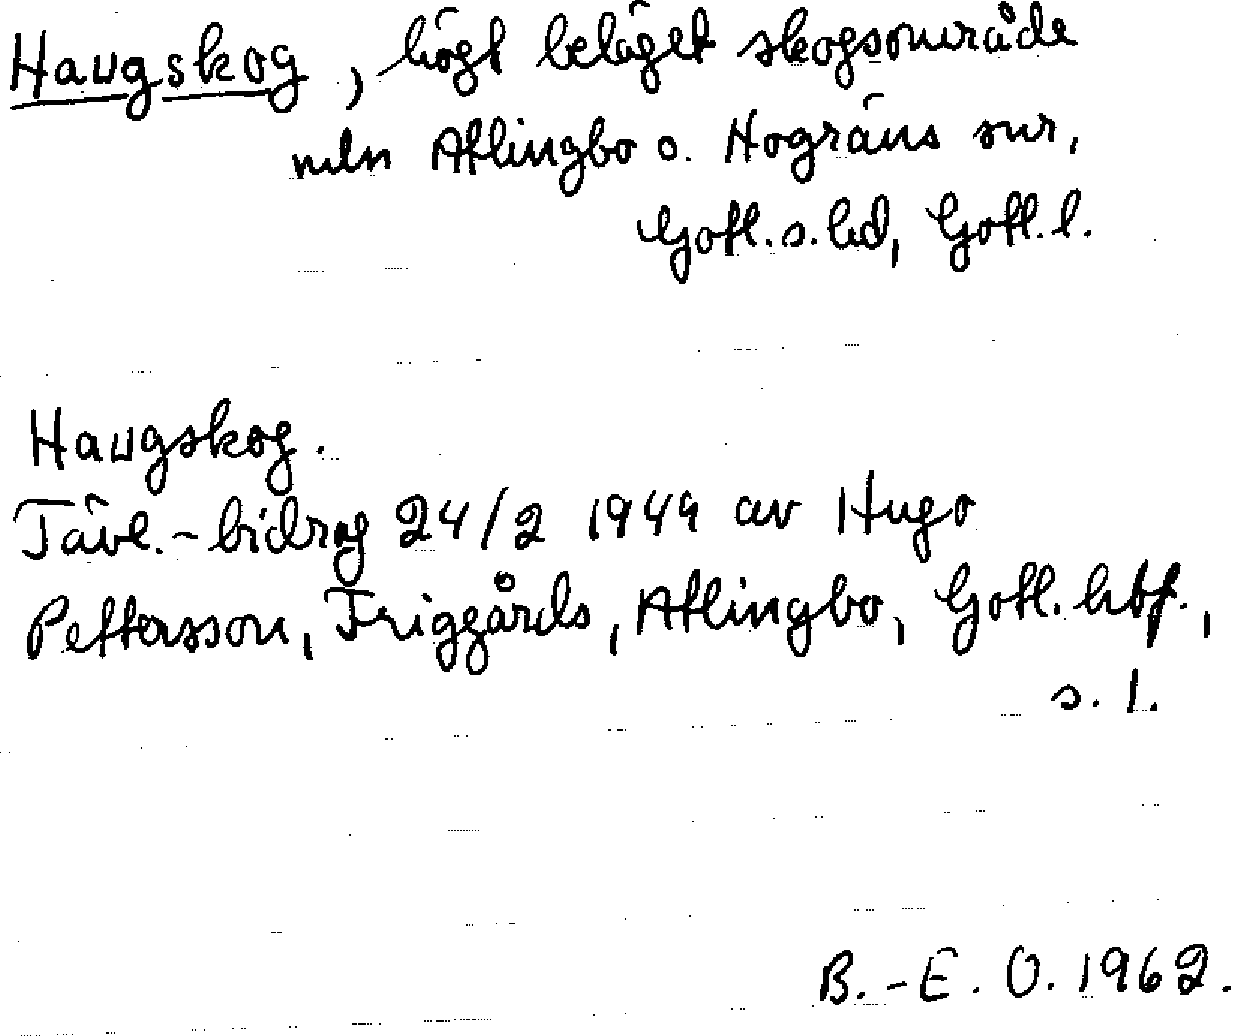 Haugskog, högt beläget skogsområde
mln Atlingbo o. Hogräns snr,
Gotl. s. hd, Gotl. l.
Haugskog.
Tävl.-bidrag 24/2 1949 av Hugo
Pettersson, Friggårds, Atlingbo, Gotl. hbf.,
s. 1.
B.-E. O. 1962.